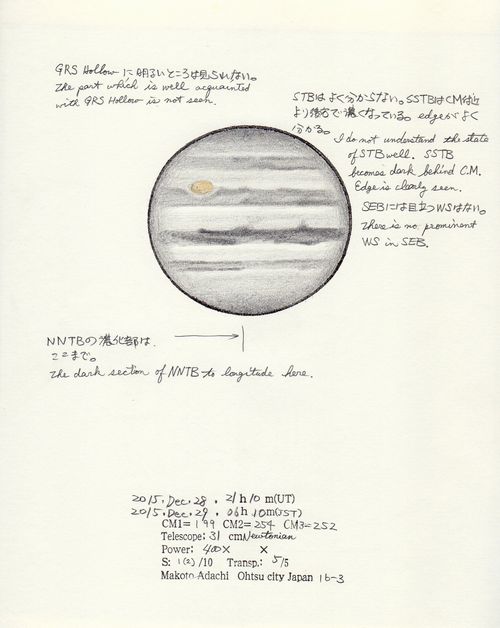 GRS Hollowに明るいところは見られない。
The part which is well acquainted
with GRS Hollow is not seen.
STBはよく分からない。SSTBはCM付近
より後方で濃くなっている。edgeがよく
分かる。
I do not understand the state
of STB well. SSTB
becomes dark behind C.M.
Edge is clearly seen.
SEBには目立つWSはない。
There is no prominent
WS in SEB.
NNTBの濃化部は、
ここまで。
The dark section of NNTB to longitude here.
2015. Dec. 28. 21h10m(UT)
2015. Dec. 29. 06h10m(JST)
CM1= 199 CM2= 254 CM3= 252
Telescope: 31 cm Newtonian
Power: 400× ×
S: 1(2)/10 Transp.: 5/5
Makoto Adachi Ohtsu city Japan 16-3